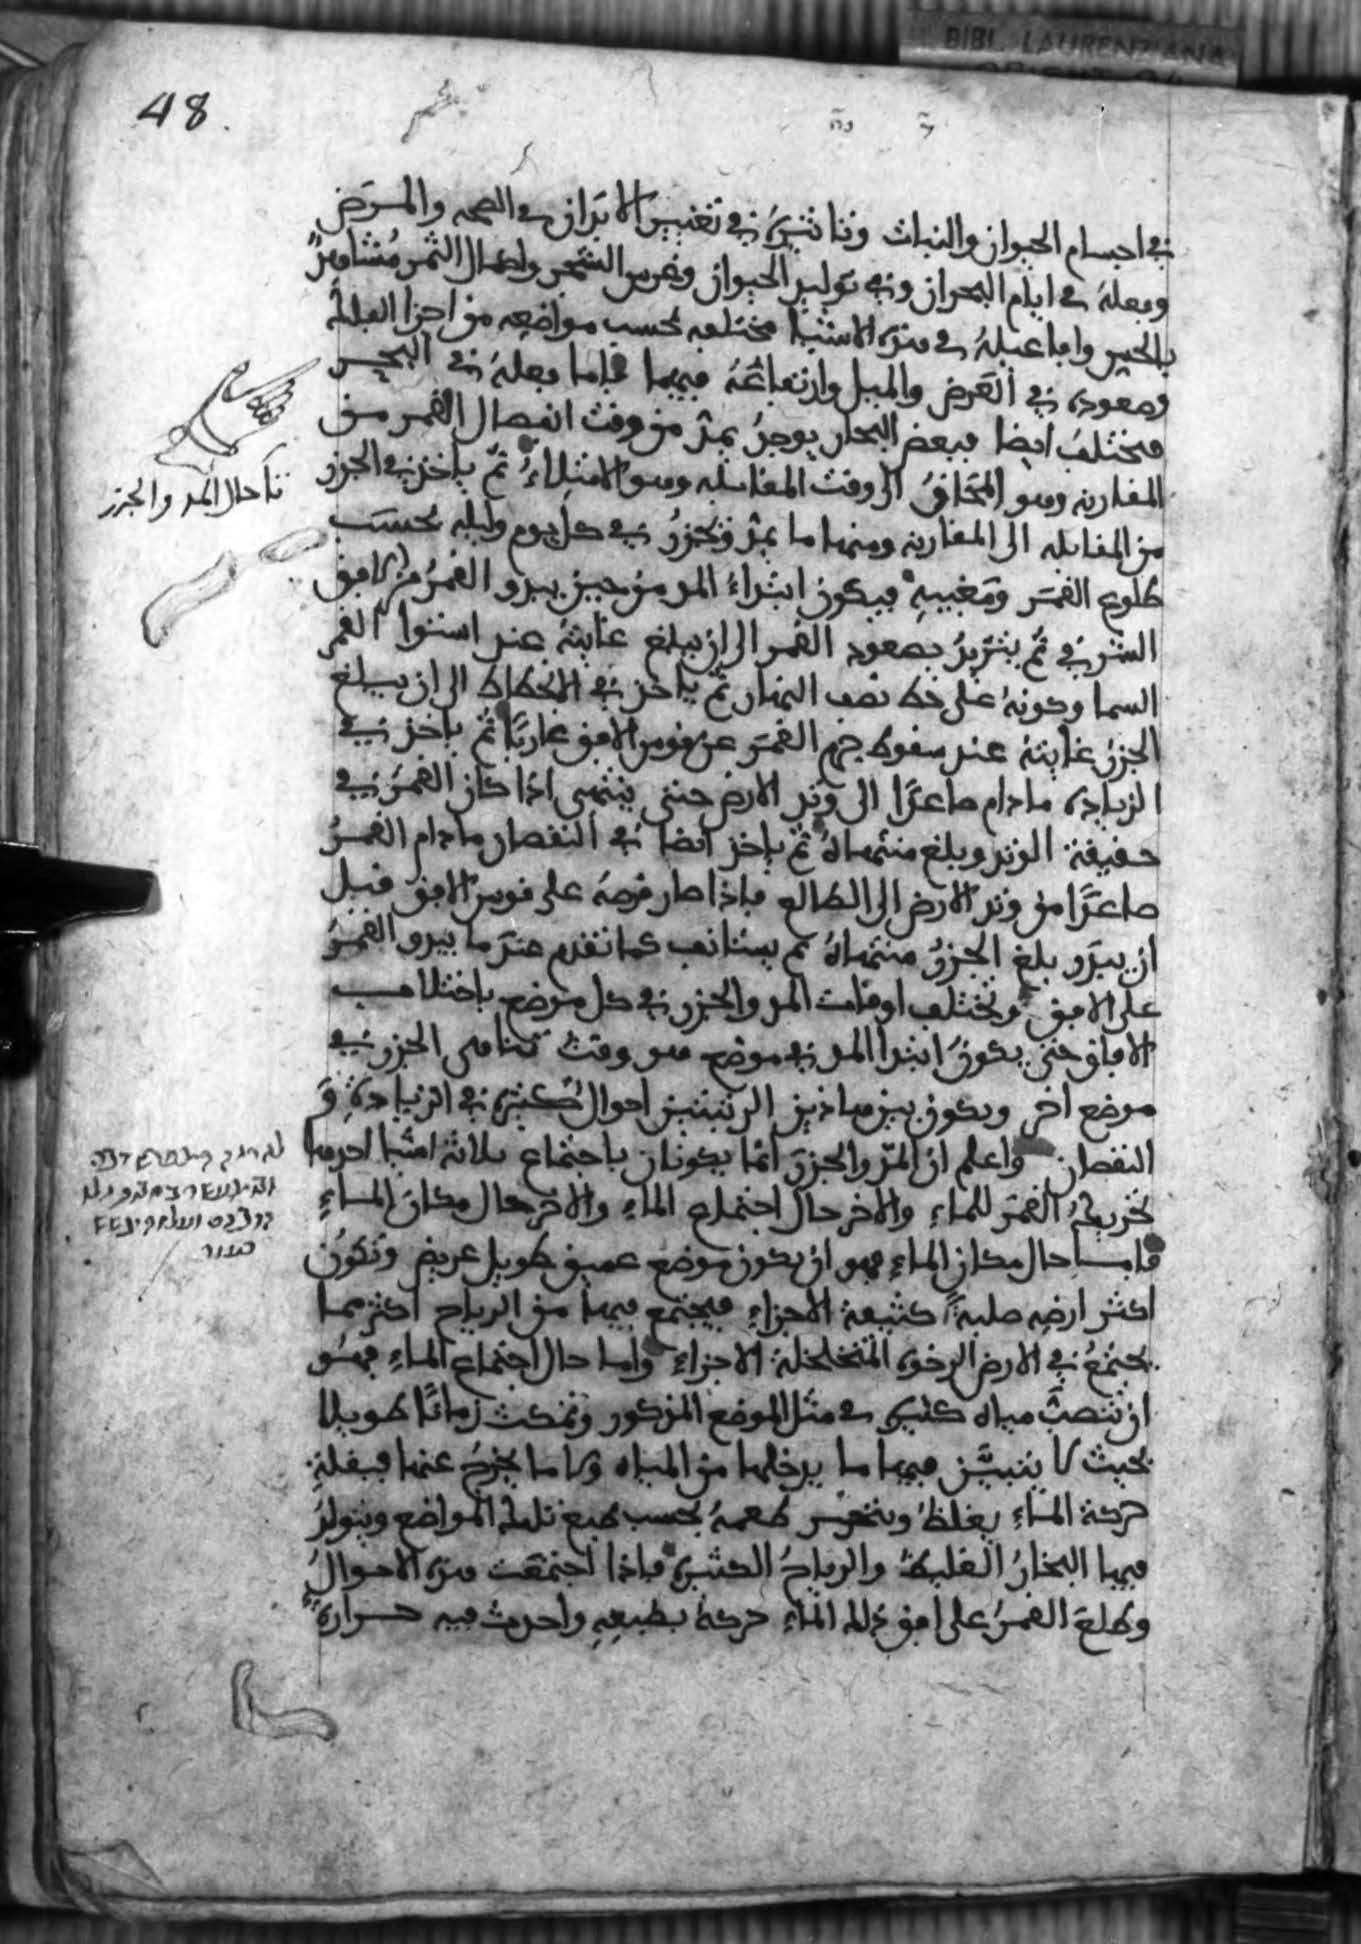 BIBL. LAURENZIANA
48
في اجسام الحيوان والنبات وتاثيره في تغيير الابدان في الصحه والمرض
وفعله في ايام البحران وفي توليد الحيوان وغرس الشجر واطعال الثمر مُشاهدٌ
بالحس واما عمله في هذه الاشيا مختلفه بحسب مواضعه من اجزا الفلك
وصعوده في العرض والميل وارتفاعه فيهما فاما فعله في البحر
فيختلف ايضا فبعض البحار يوجد يمدّ من وقت انفصال القمر من
المقارنه وهو المحاق الى وقت المقابله وهو الامتلاء ثم ياخذ في الجزر
من المقابله الى المقارنه ومنها ما يمدّ ويجزر في كل يوم وليله بحسب
طلوع القمر ومغيبه فيكون ابتداء المد من حين يبدو القمر من الافق
الشرقي ثم يتزيد بصعود القمر الى ان يبلغ غايته عند استوا القمر
السما وكونه على خط نصف النهار ثم ياخذ في الانحطاط الى ان يبلغ
الجزر غايته عند سقوط جرم القمر عن قوس الافق غاربًا ثم ياخذ في
الزياده ما دام صاعدًا الى وتد الارض حتى ينتهي اذا كان القمر في
حقيقة الوتد ويبلغ منتهاه ثم ياخذ ايضا في النقصان ما دام القمرُ
صاعدًا من وتد الارض الى الطالع فاذا صار قرصه على قوس الافق قبل
ان يبدو بلغ الجزرُ منتهاهُ ثم يستانف كما تقدم عندما يبدو القمرُ
على الافق وتختلف اوقات المد والجزر في كل موضع باختلاف
الافاق حتى يكون ابتدا المد في موضع هو وقت تناهي الجزر في
موضع اخر ويكون بين هاذين الرتبتين احوال كثيره في الزيادةِ وَ
النقصان واعلم ان المدّ والجزرَ انما يكونان باجتماع ثلاثة اشيا احدها
تحريك القمر للماءِ والاخر حال اجتماع الماءِ والاخر حال مكان الماءِ
فاما حال مكان الماءِ فهو ان يكون موضع عميق طويل عريض وتكون
اكثر ارضه صلبةً كثيفة الاجزاءِ فيجتمع فيها من الرياح اكثر مما
يجتمعُ في الارض الرخوه المتخلخلة الاجزاءِ واما حال اجتماع الماءِ فهو
ان تنصبّ مياه كثيره في مثل الموضع المذكور وتمكث زمانًا طويلا
بحيث لا يتبيّن فيها ما يدخلها من المياه ولا ما يخرج عنها فبقلةِ
حركة الماءِ يغلظُ ويتغير طعمهُ بحسب طبع تلك المواضع ويتولد
فيها البخارُ الغليظُ والرياحُ الكثيره فاذا اجتمعت هذه الاحوالُ
وطلعَ القمرُ على افق ذلك الماءِ حركهُ بطبعِهِ واحدث فيه حرارةً
حال المد والجزر